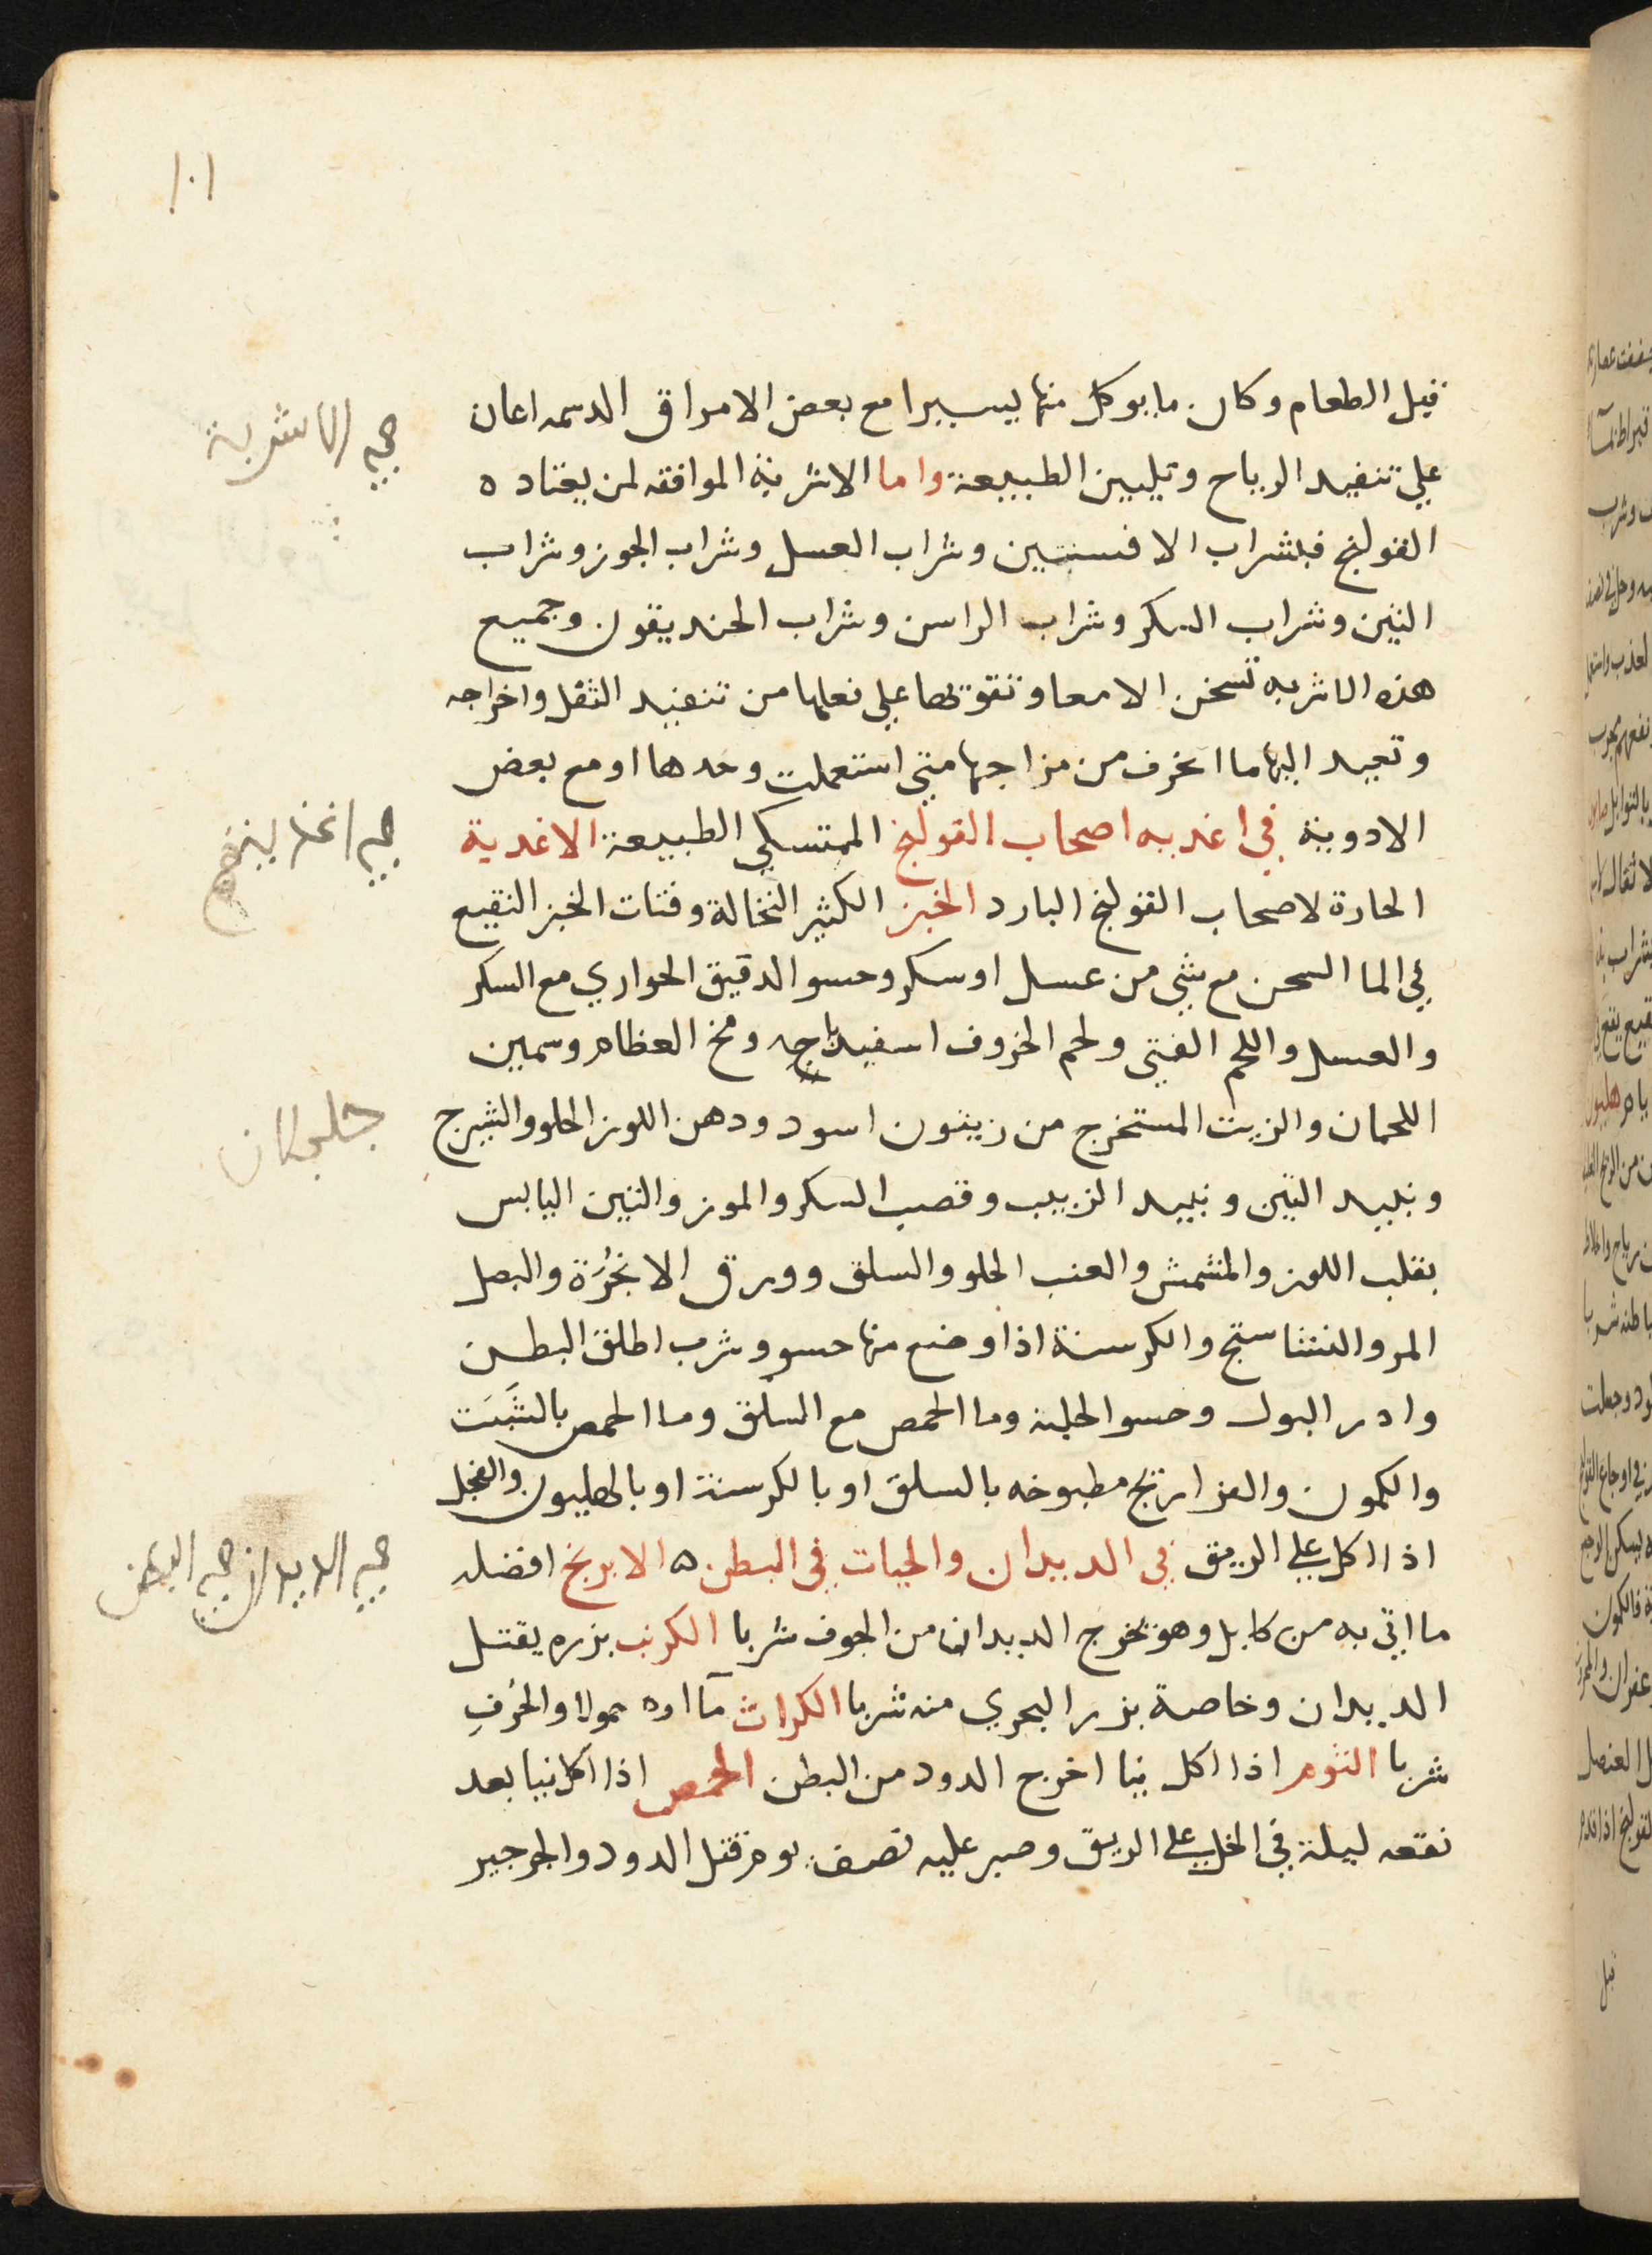 ١٠١
قبل الطعام وكان ما يوكل منها يسيرا مع بعض الامراق الدسمه اعان
علي تنفيد الرياح وتليين الطبيعة واما الاشربة الموافقه لمن يعتاده
القولنج فبشراب الافسنتين وشراب العسل وشراب الجوز وشراب
التين وشراب السكر وشراب الراسن وشراب الحنديقون وجميع
هذه الاشربه تسخن الامعا وتقويها علي فعلها من تنفيد الثفل واخراجه
وتعيد اليها ما انحرف من مزاجها متي استعملت وحدها او مع بعض
الادوية في اغديه اصحاب القولنج المتمسكي الطبيعة الاغدية
الحارة لاصحاب القولنج البارد الخبز الكثير النخالة وفتات الخبز النقيع
في الما السخن مع شي من عسل او سكر وحسو الدقيق الحواري مع السكر
والعسل واللحم الفتي ولحم الخروف اسفيدباجه ومخ العظام وسمين
اللحمان والزيت المستخرج من زيتون اسود ودهن اللوز الحلو والشيرج
ونبيد التين ونبيد الزبيب وقصب السكر والموز والتين اليابس
بقلب اللوز والمشمش والعنب الحلو والسلق وورق الانجرة والبصل
المر والنشاستج والكرسنة اذا وضع منها حسو وشرب اطلق البطن
وادر البول وحسو الحلبة وما الحمص مع السلق وما الحمص بالشبت
والكمون والفراريج مطبوخه بالسلق او بالكرسنة او بالهليون والفجل
اذا اكل علي الريق في الديدان والحيات في البطن ه الابرنج افضله
ما اتي به من كابل وهو يخرج الديدان من الجوف شربا الكرنب بزره يقتل
الديدان وخاصة بزر البحري منه شربا الكراث مآاوه حمولا والحُرفِ
شربا الثوم اذا اكل نيا اخرج الدود من البطن الحمص اذا اكل نيا بعد
نقعه ليلة في الخل علي الريق وصبر عليه نصف يوم قتل الدود والجرجير
في الاشربة
جلجلان
في الديدان في البطن